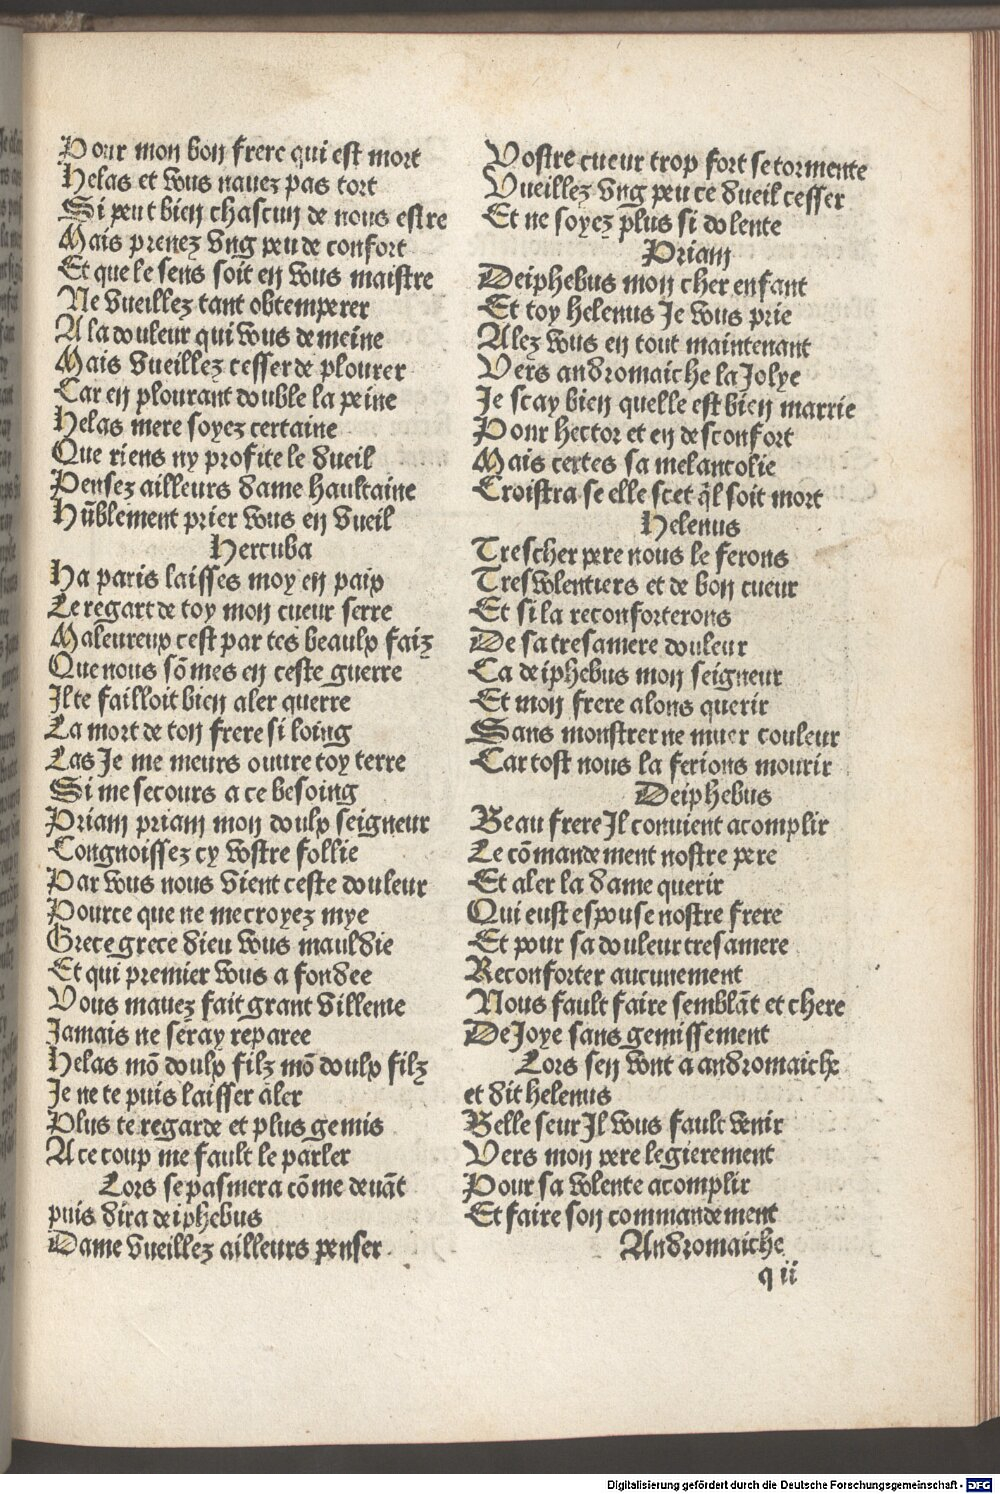 Pour mon bon frere qui est mort
Helas et vous nauez pas tort
Si peut bien chascun de nous estre
Mais prenez vng peu de confort
Et que le sens soit en vous maistre
Ne vueillez tant obtemperer
A la douleur qui vous demeine
Mais vueillez cesser de plourer
Car en plourant double la peine
Helas mere soyez certaine
Que riens ny profite le dueil
Pensez ailleurs dame haultaine
Hūblement prier vous en vueil
Hercuba
Ha paris laisses moy en paix
Le regart de toy mon cueur serre
Maleureux cest par tes beaulx faiz
Que nous sōmes en ceste guerre
Il te failloit bien aler querre
La mort de ton frere si loing
Las Je me meurs ouure toy terre
Si me secours a ce besoing
Priam priam mon doulx seigneur
Congnoissez cy vostre follie
Par vous nous vient ceste douleur
Pource que ne me croyez mye
Grece grece dieu vous mauldie
Et qui premier vous a fondee
Vous mauez fait grant villenie
Jamais ne seray reparee
Helas mō doulx filz mō doulx filz
Je ne te puis laisser aler
Plus te regarde et plus gemis
A ce coup me fault le parler
Lors se pasmera cōme deuāt
puis dira deiphebus
Dame vueillez ailleurs penser
Vostre cueur trop fort se tormente
Vueillez vng peu ce dueil cesser
Et ne soyez plus si dolente
Priam
Deiphebus mon cher enfant
Et toy helenus Je vous prie
Alez vous en tout maintenant
Vers andromaiche la Jolye
Je scay bien quelle est bien marrie
Pour hector et en desconfort
Mais certes sa melancolie
Croistra se elle scet q̄l soit mort
Helenus
Trescher pere nous le ferons
Tresvolentiers et de bon cueur
Et si la reconforterons
De sa tresamere douleur
Ca deiphebus mon seigneur
Et mon frere alons querir
Sans monstrer ne muer couleur
Car tost nous la ferions mourir
Deiphebus
Beau frere Il conuient acomplir
Le cōmandement nostre pere
Et aler la dame querir
Qui eust espouse nostre frere
Et pour sa douleur tresamere
Reconforter aucunement
Nous fault faire semblāt et chere
De Joye sans gemissement
Lors sen vont a andromaiche
et dit helenus
Belle seur Il vous fault venir
Vers mon pere legierement
Pour sa volente acomplir
Et faire son commandement
Andromaiche
q ii
Digitalisierung gefördert durch die Deutsche Forschungsgemeinschaft - DFG